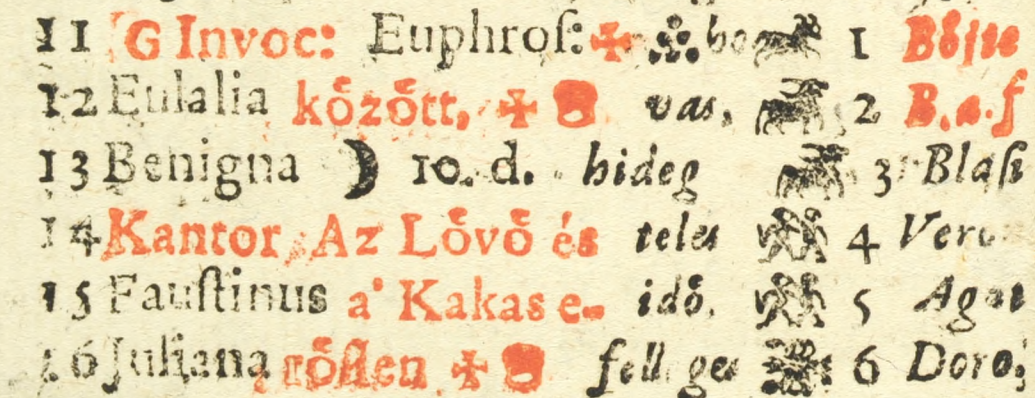 11 G Invoc: Euphroſ: ho 1 Bőjte
12 Eulalia kőzőtt, vas, 2 B. a. ſ
13 Benigna 10. d. hideg 3 Blaſi
14 Kantor, Az Lővő és teles 4 Vero
15 Fauſtinus a' Kakas e- idő, 5 Agat
16 Juliana rőſſen fellges 6 Doro: